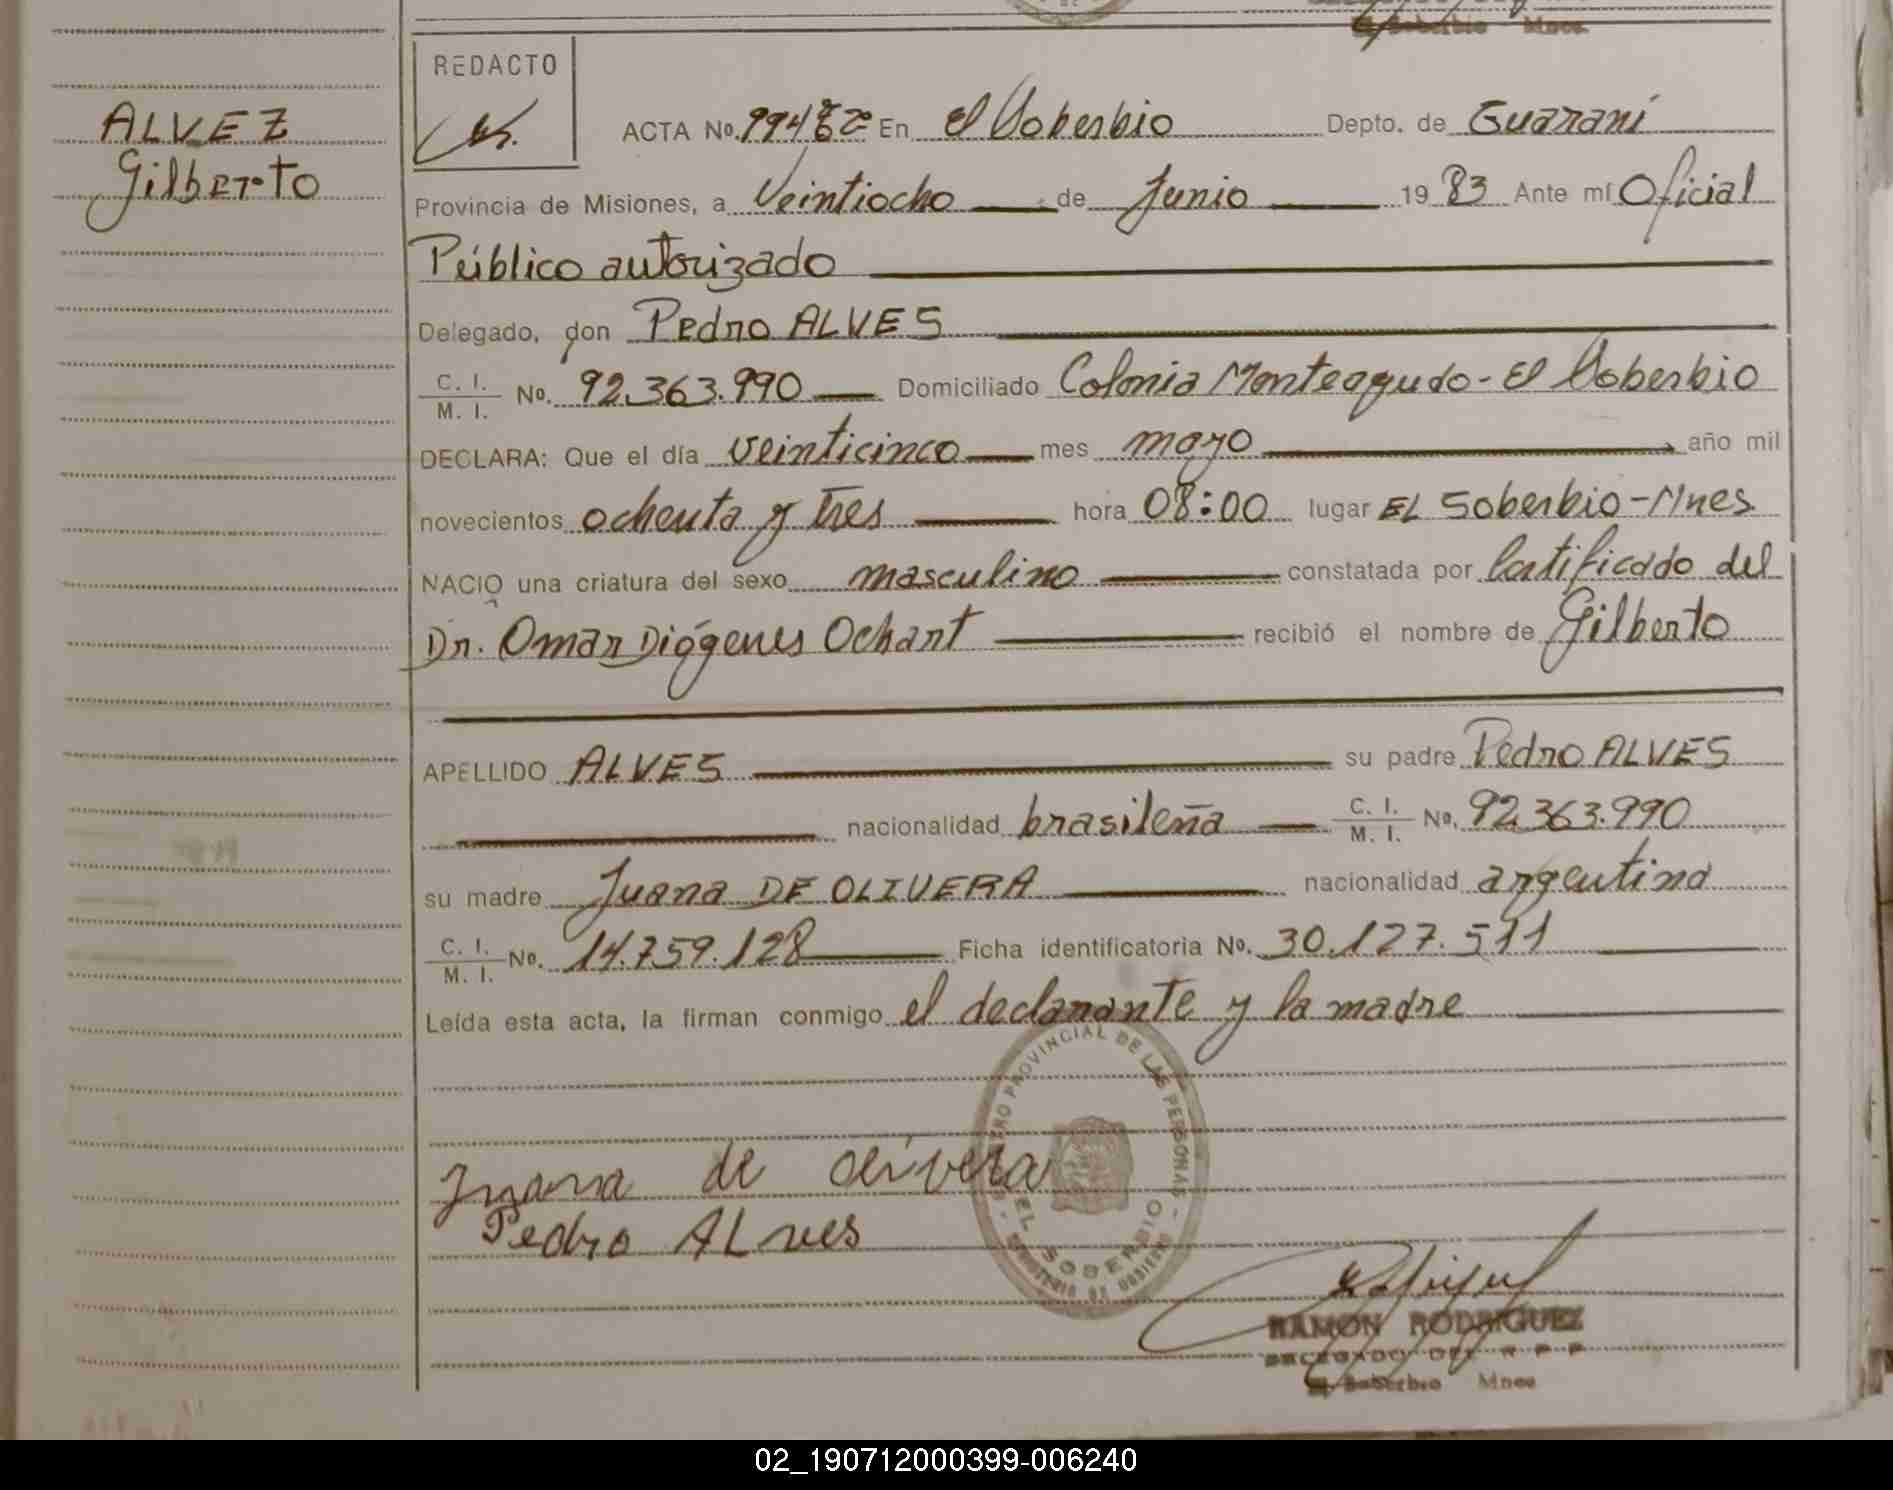 El Soberbio Mnes.
REDACTO
ALVEZ
Gilberto
ACTA No. En El Soberbio Depto. de Guaraní
Provincia de Misiones, a Veintiocho de Junio 1983 Ante mí Oficial
Público autorizado
Delegado, don Pedro ALVES
C. I.
M. I. No. 92.363.990 Domiciliado Colonia Monteagudo - El Soberbio
DECLARA: Que el día veinticinco mes mayo año mil
novecientos ochenta y tres hora 08:00 lugar EL Soberbio - Mnes
NACIO una criatura del sexo masculino constatada por Certificado del
Dr. Omar Diógenes Ochant recibió el nombre de Gilberto
APELLIDO ALVES su padre Pedro ALVES
nacionalidad brasileña C. I. M. I. No. 92.363.990
su madre Juana DE OLIVERA nacionalidad argentina
C. I.
M. I. No. 14.759.128 Ficha identificatoria No. 30.127.511
Leída esta acta, la firman conmigo el declarante y la madre
REGISTRO PROVINCIAL DE LAS PERSONAS
EL SOBERBIO
MINISTERIO DE GOBIERNO
Juana de olivera
Pedro ALves
RAMON RODRIGUEZ
DELEGADO DEL R P P
El Soberbio Mnes
02_190712000399-006240